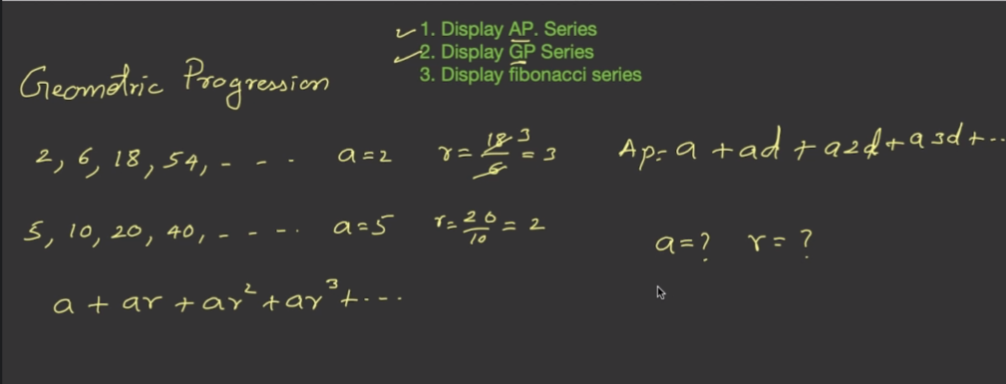 1. Display AP. Series
2. Display GP Series
3. Display fibonacci series
Geometric Progression
2, 6, 18, 54, - - - a=2 r= 18/6 3 = 3
Ap:- a + ad + a2d + a3d + ...
5, 10, 20, 40, - - - . a=5 r= 20/10 = 2
a=? r=?
a + ar + ar² + ar³ + . - -